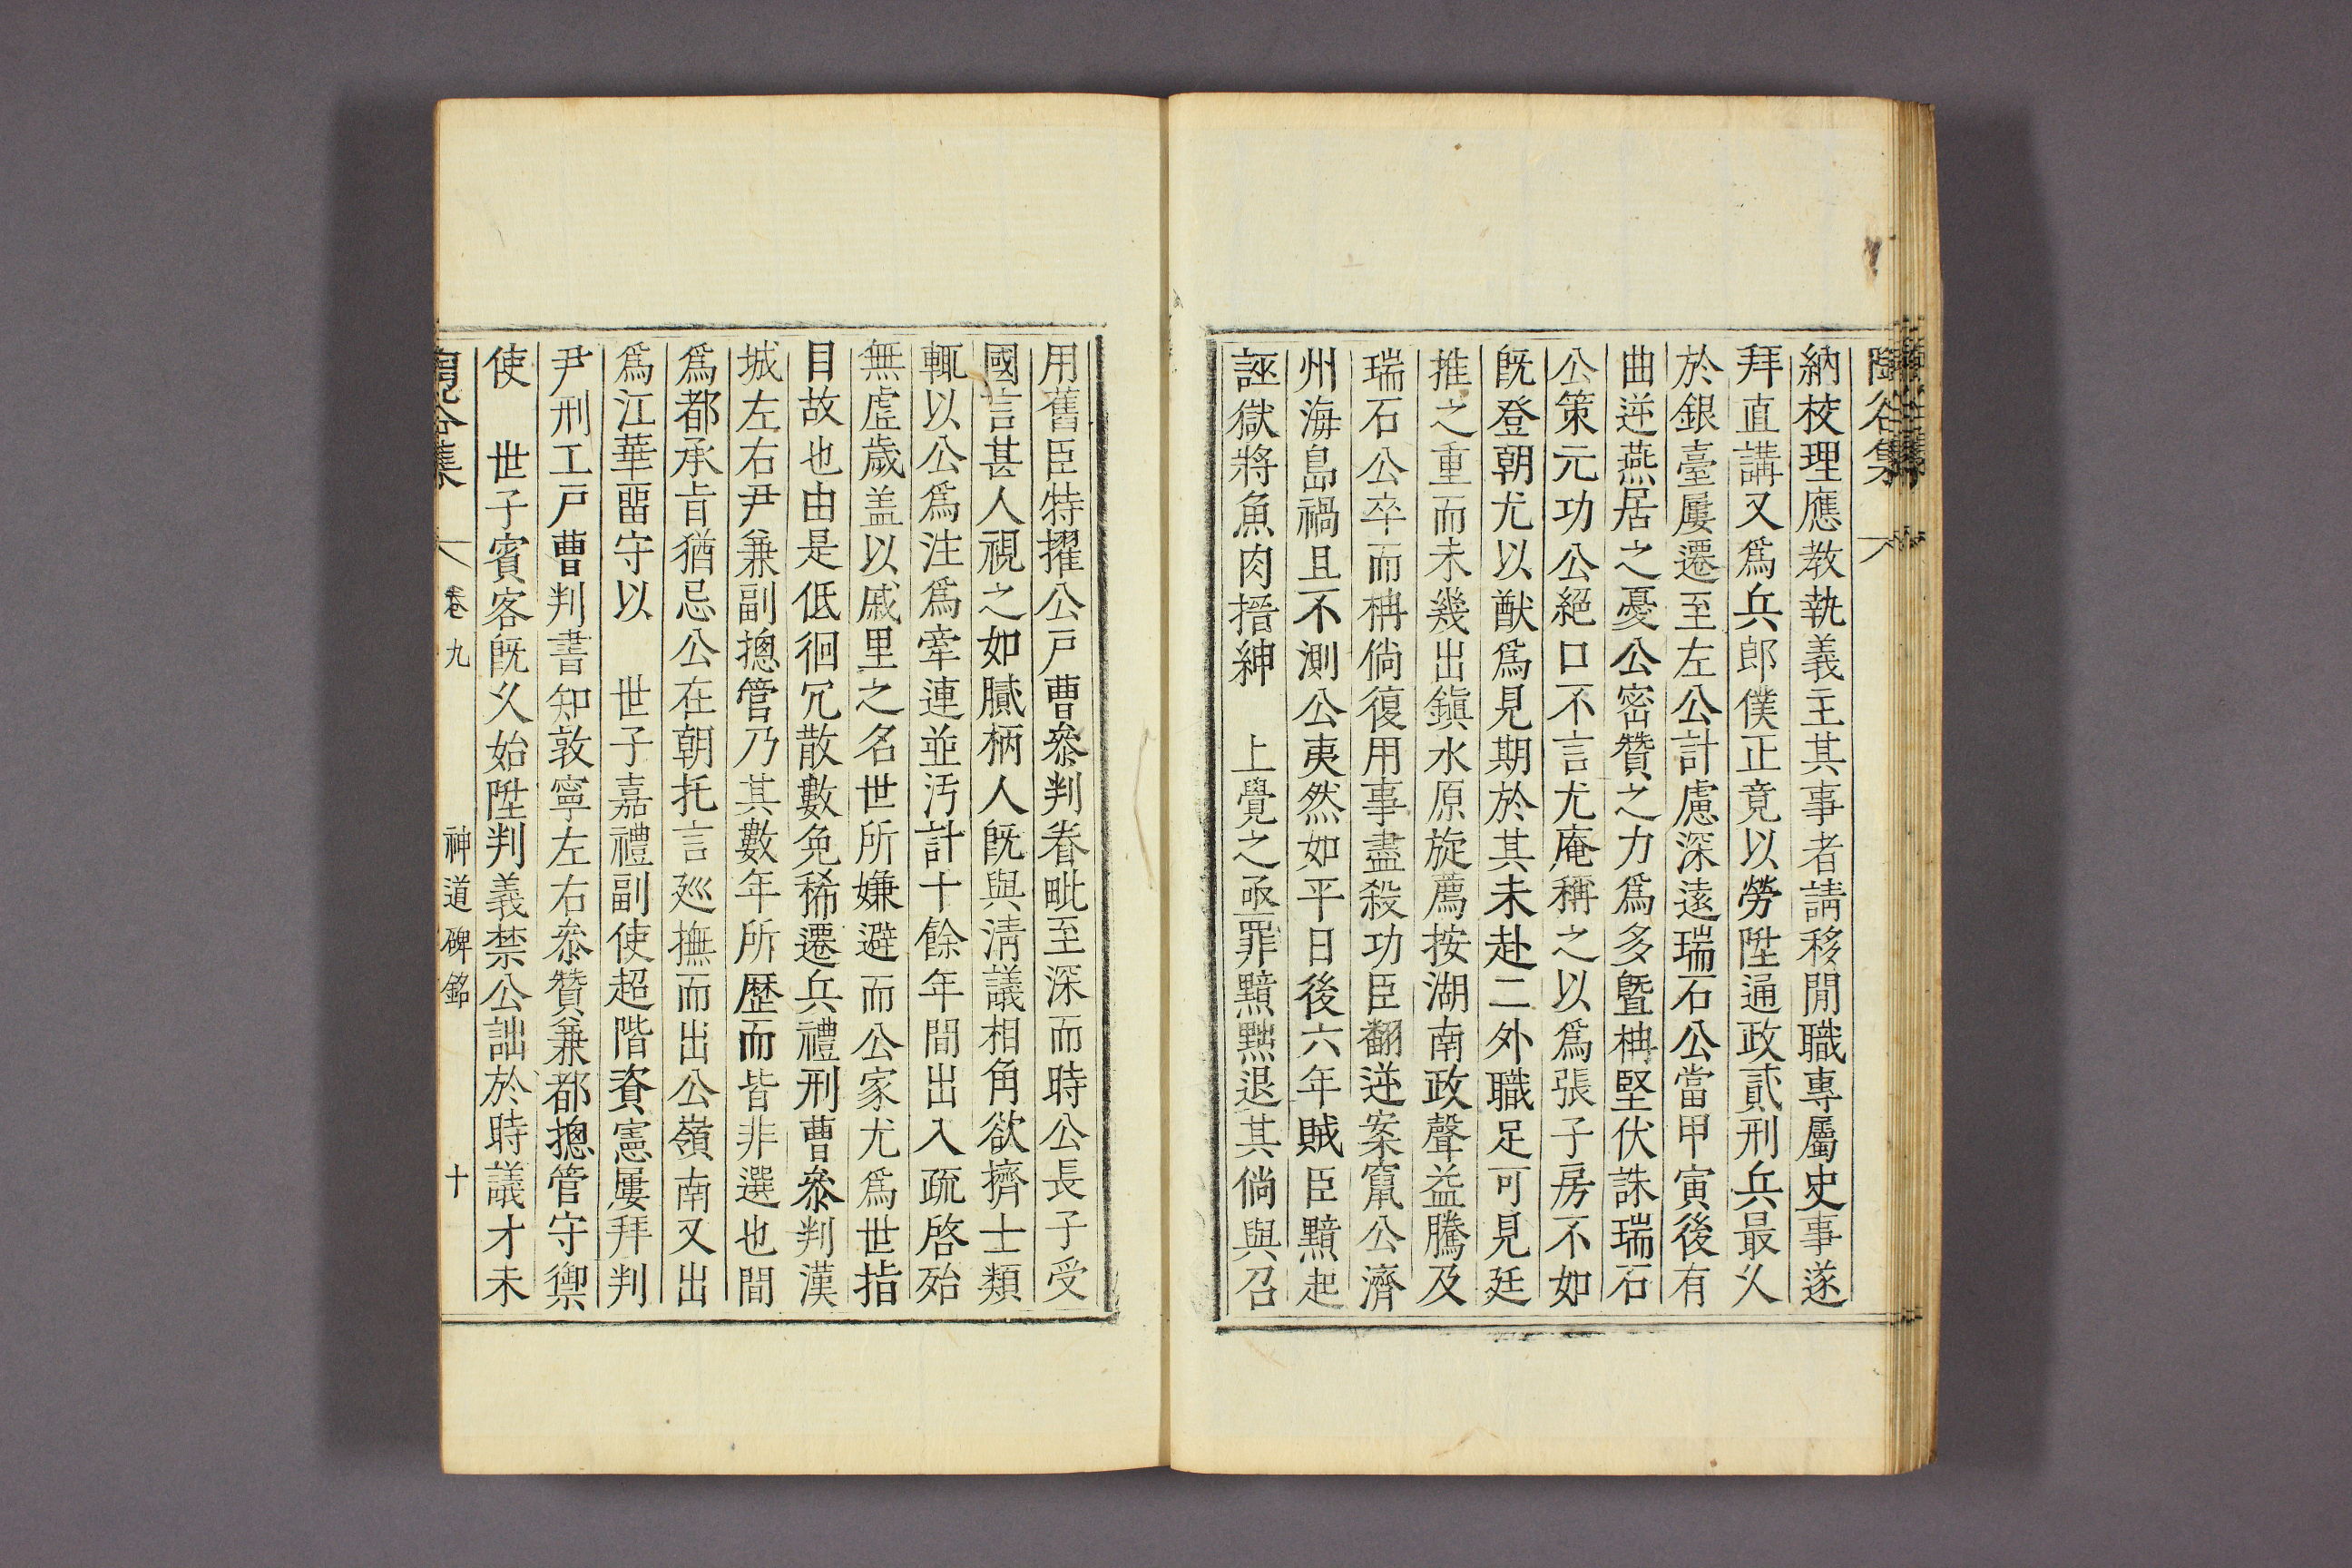 陶谷集
納校理應教執義主其事者請移閒職專屬史事遂
拜直講又爲兵郎僕正竟以勞陞通政貳刑兵最久
於銀臺屢遷至左公計慮深遠瑞石公當甲寅後有
曲逆燕居之憂公密贊之力爲多曁枏堅伏誅瑞石
公策元功公絕口不言尤庵稱之以爲張子房不如
旣登朝尤以猷爲見期於其未赴二外職足可見廷
推之重而未幾出鎭水原旋薦按湖南政聲益騰及
瑞石公卒而枏倘復用事盡殺功臣翻逆案竄公濟
州海島禍且不測公夷然如平日後六年賊臣黯起
誣獄將魚肉搢紳　上覺之亟罪黯黜退其倘與召
用舊臣特擢公戶曹叅判眷毗至深而時公長子受
國言甚人視之如膩柄人旣與淸議相角欲擠士類
輒以公爲注爲牽連並汚計十餘年間出入疏啓殆
無虛歲盖以戚里之名世所嫌避而公家尤爲世指
目故也由是低徊冗散數免稀遷兵禮刑曹叅判漢
城左右尹兼副摠管乃其數年所歷而皆非選也間
爲都承旨猶忌公在朝托言廵撫而出公嶺南又出
爲江華畱守以　世子嘉禮副使超階資憲屢拜判
尹刑工戶曹判書知敦寧左右叅贊兼都摠管守禦
使　世子賓客旣久始陞判義禁公詘於時議才未
陶谷集　卷九　神道碑銘　十